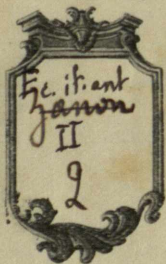 Ec. it. ant
Zanon
II
2